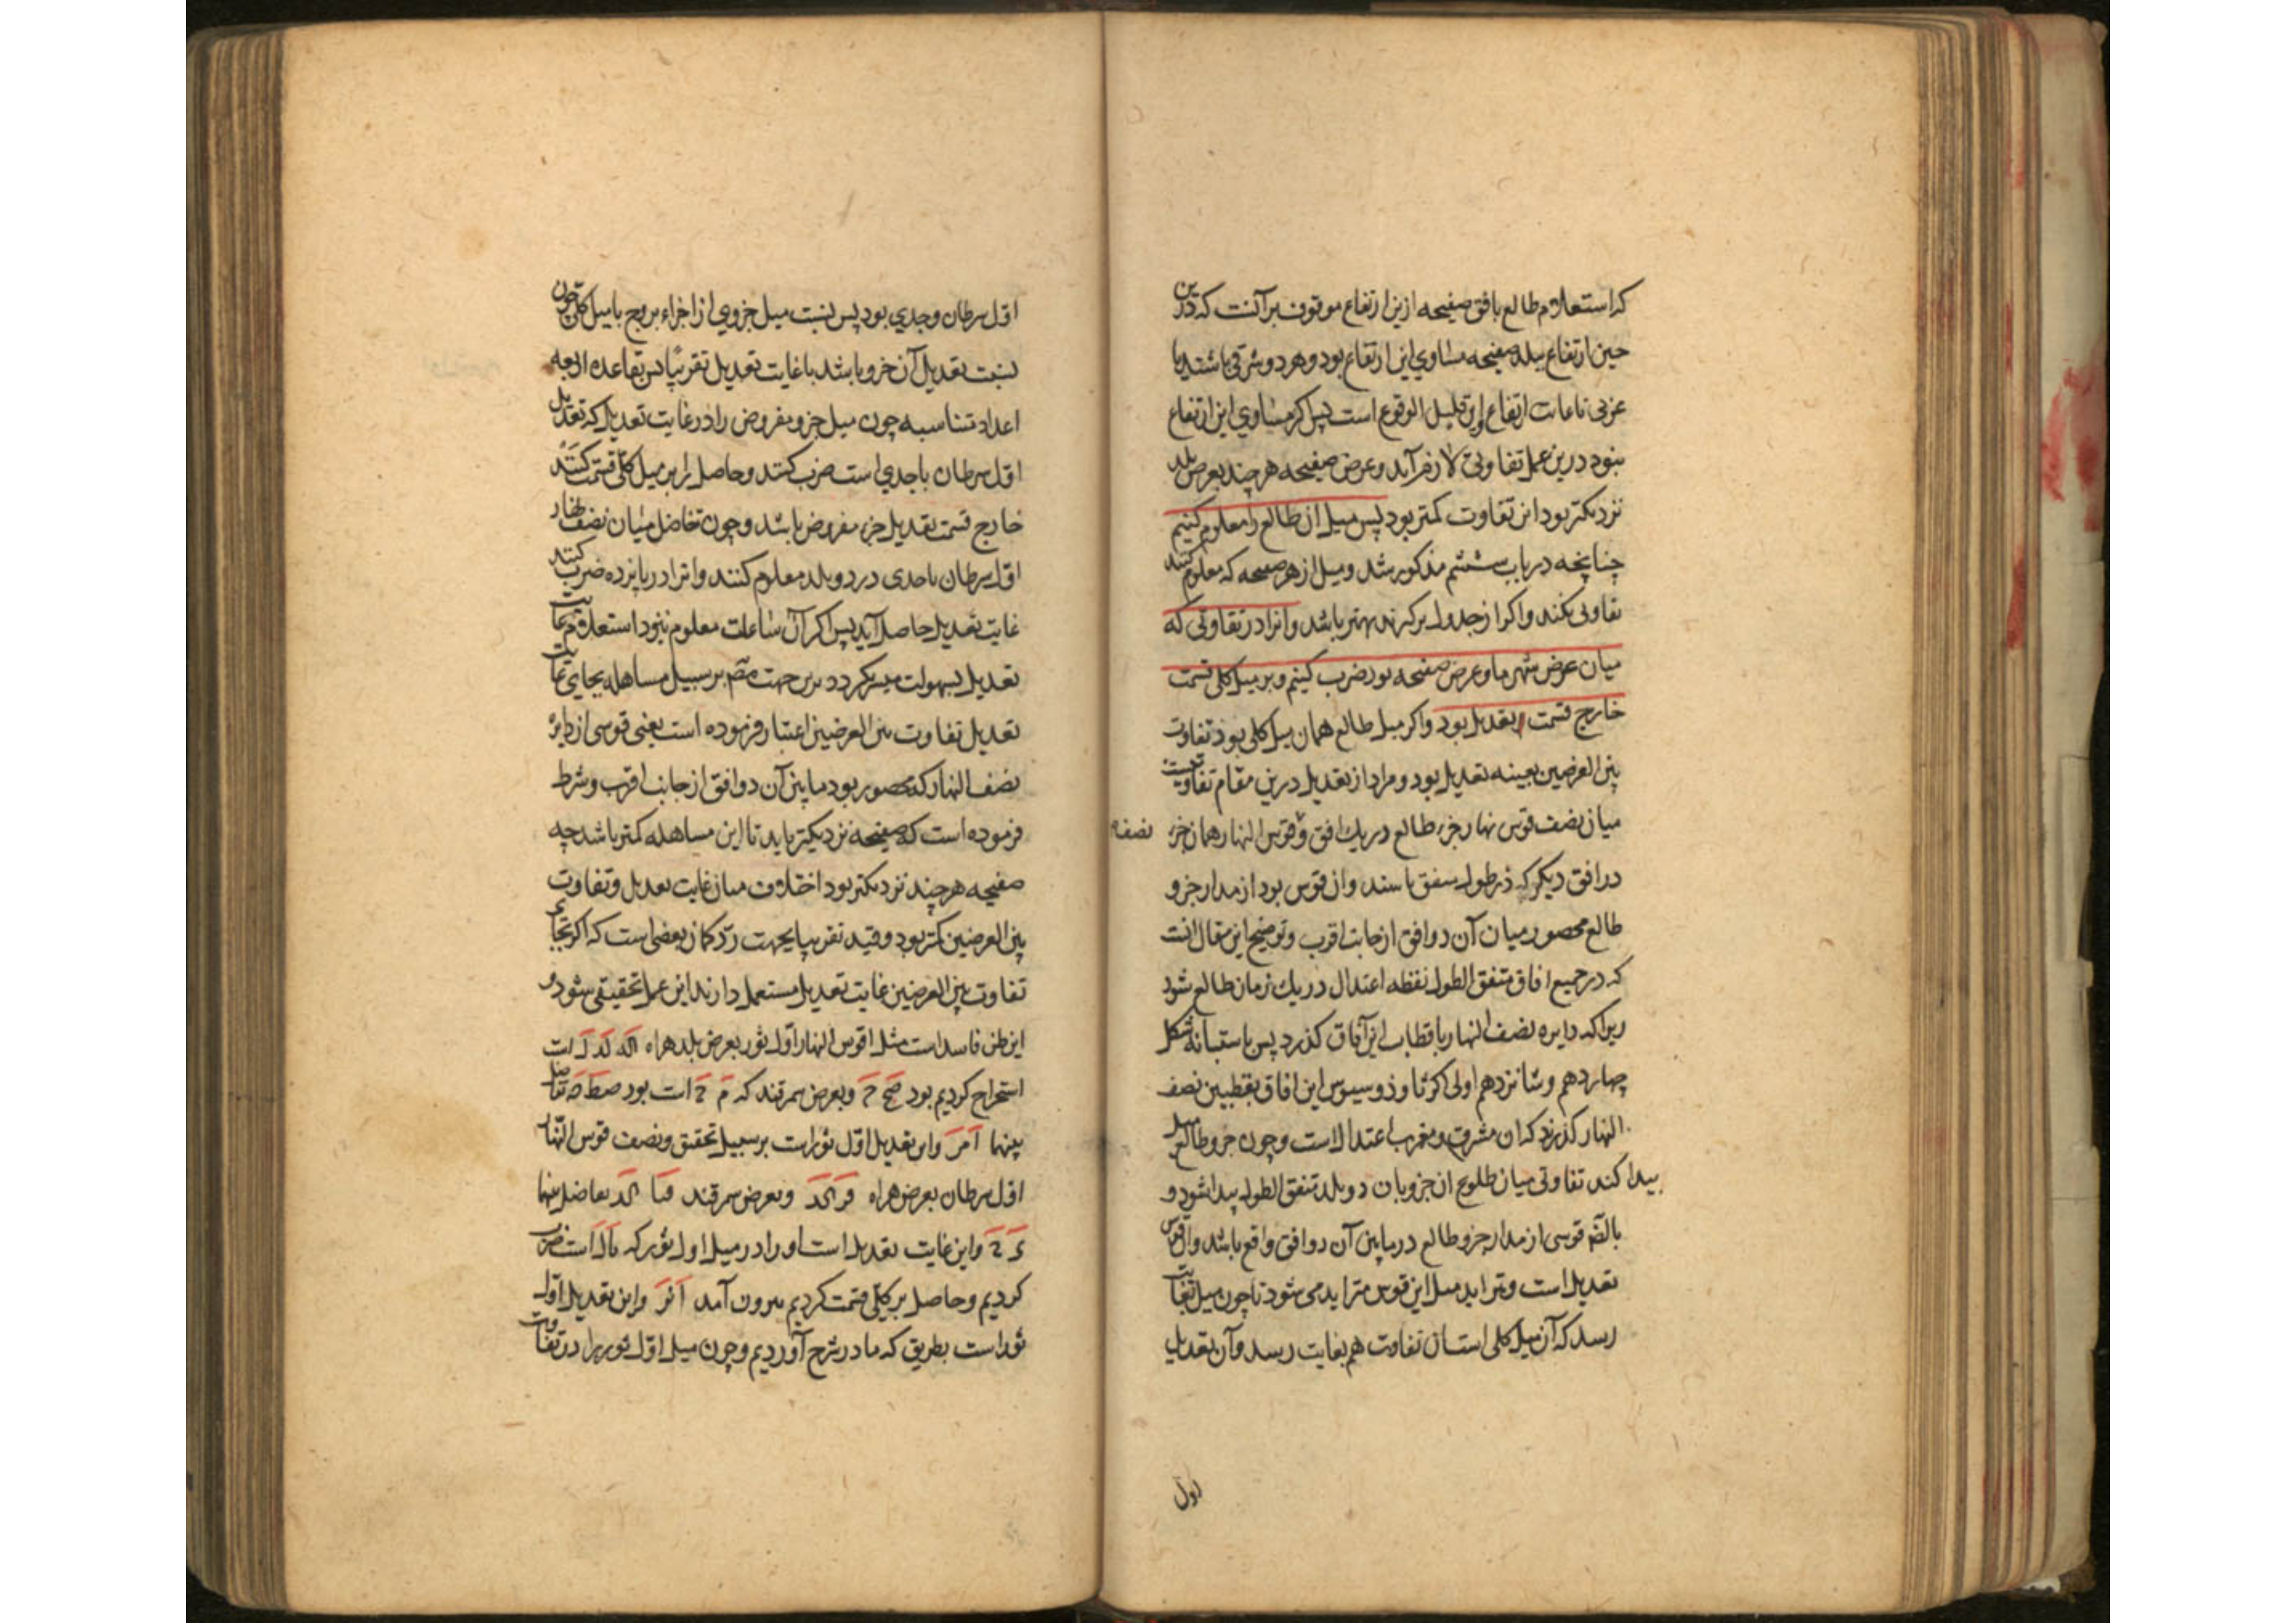 که استعلام طالع بافق صفیحه ازین ارتفاع موقوف بر آنست که درین
حین ارتفاع ببلد صفیحه مساوی این ارتفاع بود و هر دو شرقی باشند یا
غربی تا غایت ارتفاع و این قلیل الوقوع است پس اگر مساوی این ارتفاع
نبود درین عمل تفاوتی لازم آید و عرض صفیحه هر چند بعرض بلد
نزدیکتر بود این تفاوت کمتر بود پس میل آن طالع را معلوم کنیم
چنانچه در باب ششم مذکور شد و میل از هر صفیحه که معلوم کنند
تفاوتی نکند و اگر از جدول برگیرند بهتر باشد و آنرا در تفاوتی که
میان عرض شهر ما و عرض صفحه بود ضرب کنیم و بر میل کلی قسمت
خارج قسمت تعدیل بود و اگر میل طالع همان میل کلی بود تفاوت
بین العرضین بعینه تعدیل بود و مراد از تعدیل درین مقام تفاوتیست
میان نصف قوس نهار جزء طالع در یک افق و قوس النهار همان جزء
نصف
در افق دیگر که در طول متفق باشند و آن قوس بود از مدار جزو
طالع محصور میان آن دو افق از جانب اقرب و توضیح این مقال آنست
که در جمیع افاق متفق الطول نقطه اعتدال در یک زمان طالع شود
زیرا که دایره نصف النهار باقطاب این آفاق گذرد پس باستبانه شکل
چهاردهم و شانزدهم اولی اکر ثاوذوسیوس این افاق بقطبین نصف
النهار گذرند که آن مشرق و مغرب اعتدال است و چون جزو طالع میل
پیدا کند تفاوتی میان طلوع آن جزو بان دو بلد متفق الطول پیدا شود و
بالضم قوسی از مدار جزو طالع در مابین آن دو افق واقع باشد و آن قوس
تعدیل است و بتزاید میل این قوس متزاید می شود تا چون میل بغایت
رسد که آن میل کلی است آن تفاوت هم بغایت رسد و آن تعدیل
اول
اول سرطان و جدی بود پس نسبت میل جزوی از اجزاء بروج با میل کلی چون
نسبت تعدیل آن جزو باشد با غایت تعدیل تقریبا پس بقاعده اربعه
اعداد متناسبه چون میل جزو مفروض را در غایت تعدیل که تعدیل
اول سرطان یا جدی است ضرب کنند و حاصل را بر میل کلی قسمت کنند
خارج قسمت تعدیل جزء مفروض باشد و چون تفاضل میان نصف نهار
اول سرطان یا جدی در دو بلد معلوم کنند و آنرا در پانزده ضرب کنند
غایت تعدیل حاصل آید پس اگر آن ساعات معلوم نبود استعلام غایت
تعدیل بسهولت میسر نگردد بدین جهت مصم بر سبیل مساهله بجای غایت
تعدیل تفاوت بین العرضین اعتبار فرموده است یعنی قوسی از دایره
نصف النهار که محصور بود مابین آن دو افق از جانب اقرب و شرط
فرموده است که صفیحه نزدیکتر باید تا این مساهله کمتر باشد چه
صفیحه هر چند نزدیکتر بود اختلاف میان غایت تعدیل و تفاوت
بین العرضین کمتر بود و قید تقریبا بجهت رد گمان بعضی است که اگر بجای
تفاوت بین العرضین غایت تعدیل مستعمل دارند این عمل تحقیقی شود و
این ظن فاسد است مثلا قوس النهار اول ثور بعرض بلد هراه که لد ل است
استخراج کردیم بود صح ح و بعرض سمرقند که م ح است بود صط تفاضل
بینهما ا مر و این تعدیل اول ثور است بر سبیل تحقیق و نصف قوس النهار
اول سرطان بعرض هراه و بعرض سمرقند تفاضل بینهما
و این غایت تعدیل است او را در میل اول ثور که یا ل است ضرب
کردیم و حاصل بر کلی قسمت کردیم بیرون آمد ا نر و این تعدیل اول
ثور است بطریق که ما در شرح آوردیم و چون میل اول ثور را در تفاوت